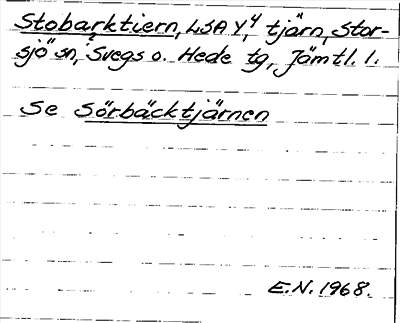 Stobarktiern, LSA Y,4 tjärn, Stor-
sjö sn, Svegs o. Hede tg, Jämtl. l.
Se Sörbäcktjärnen
E.N. 1968.